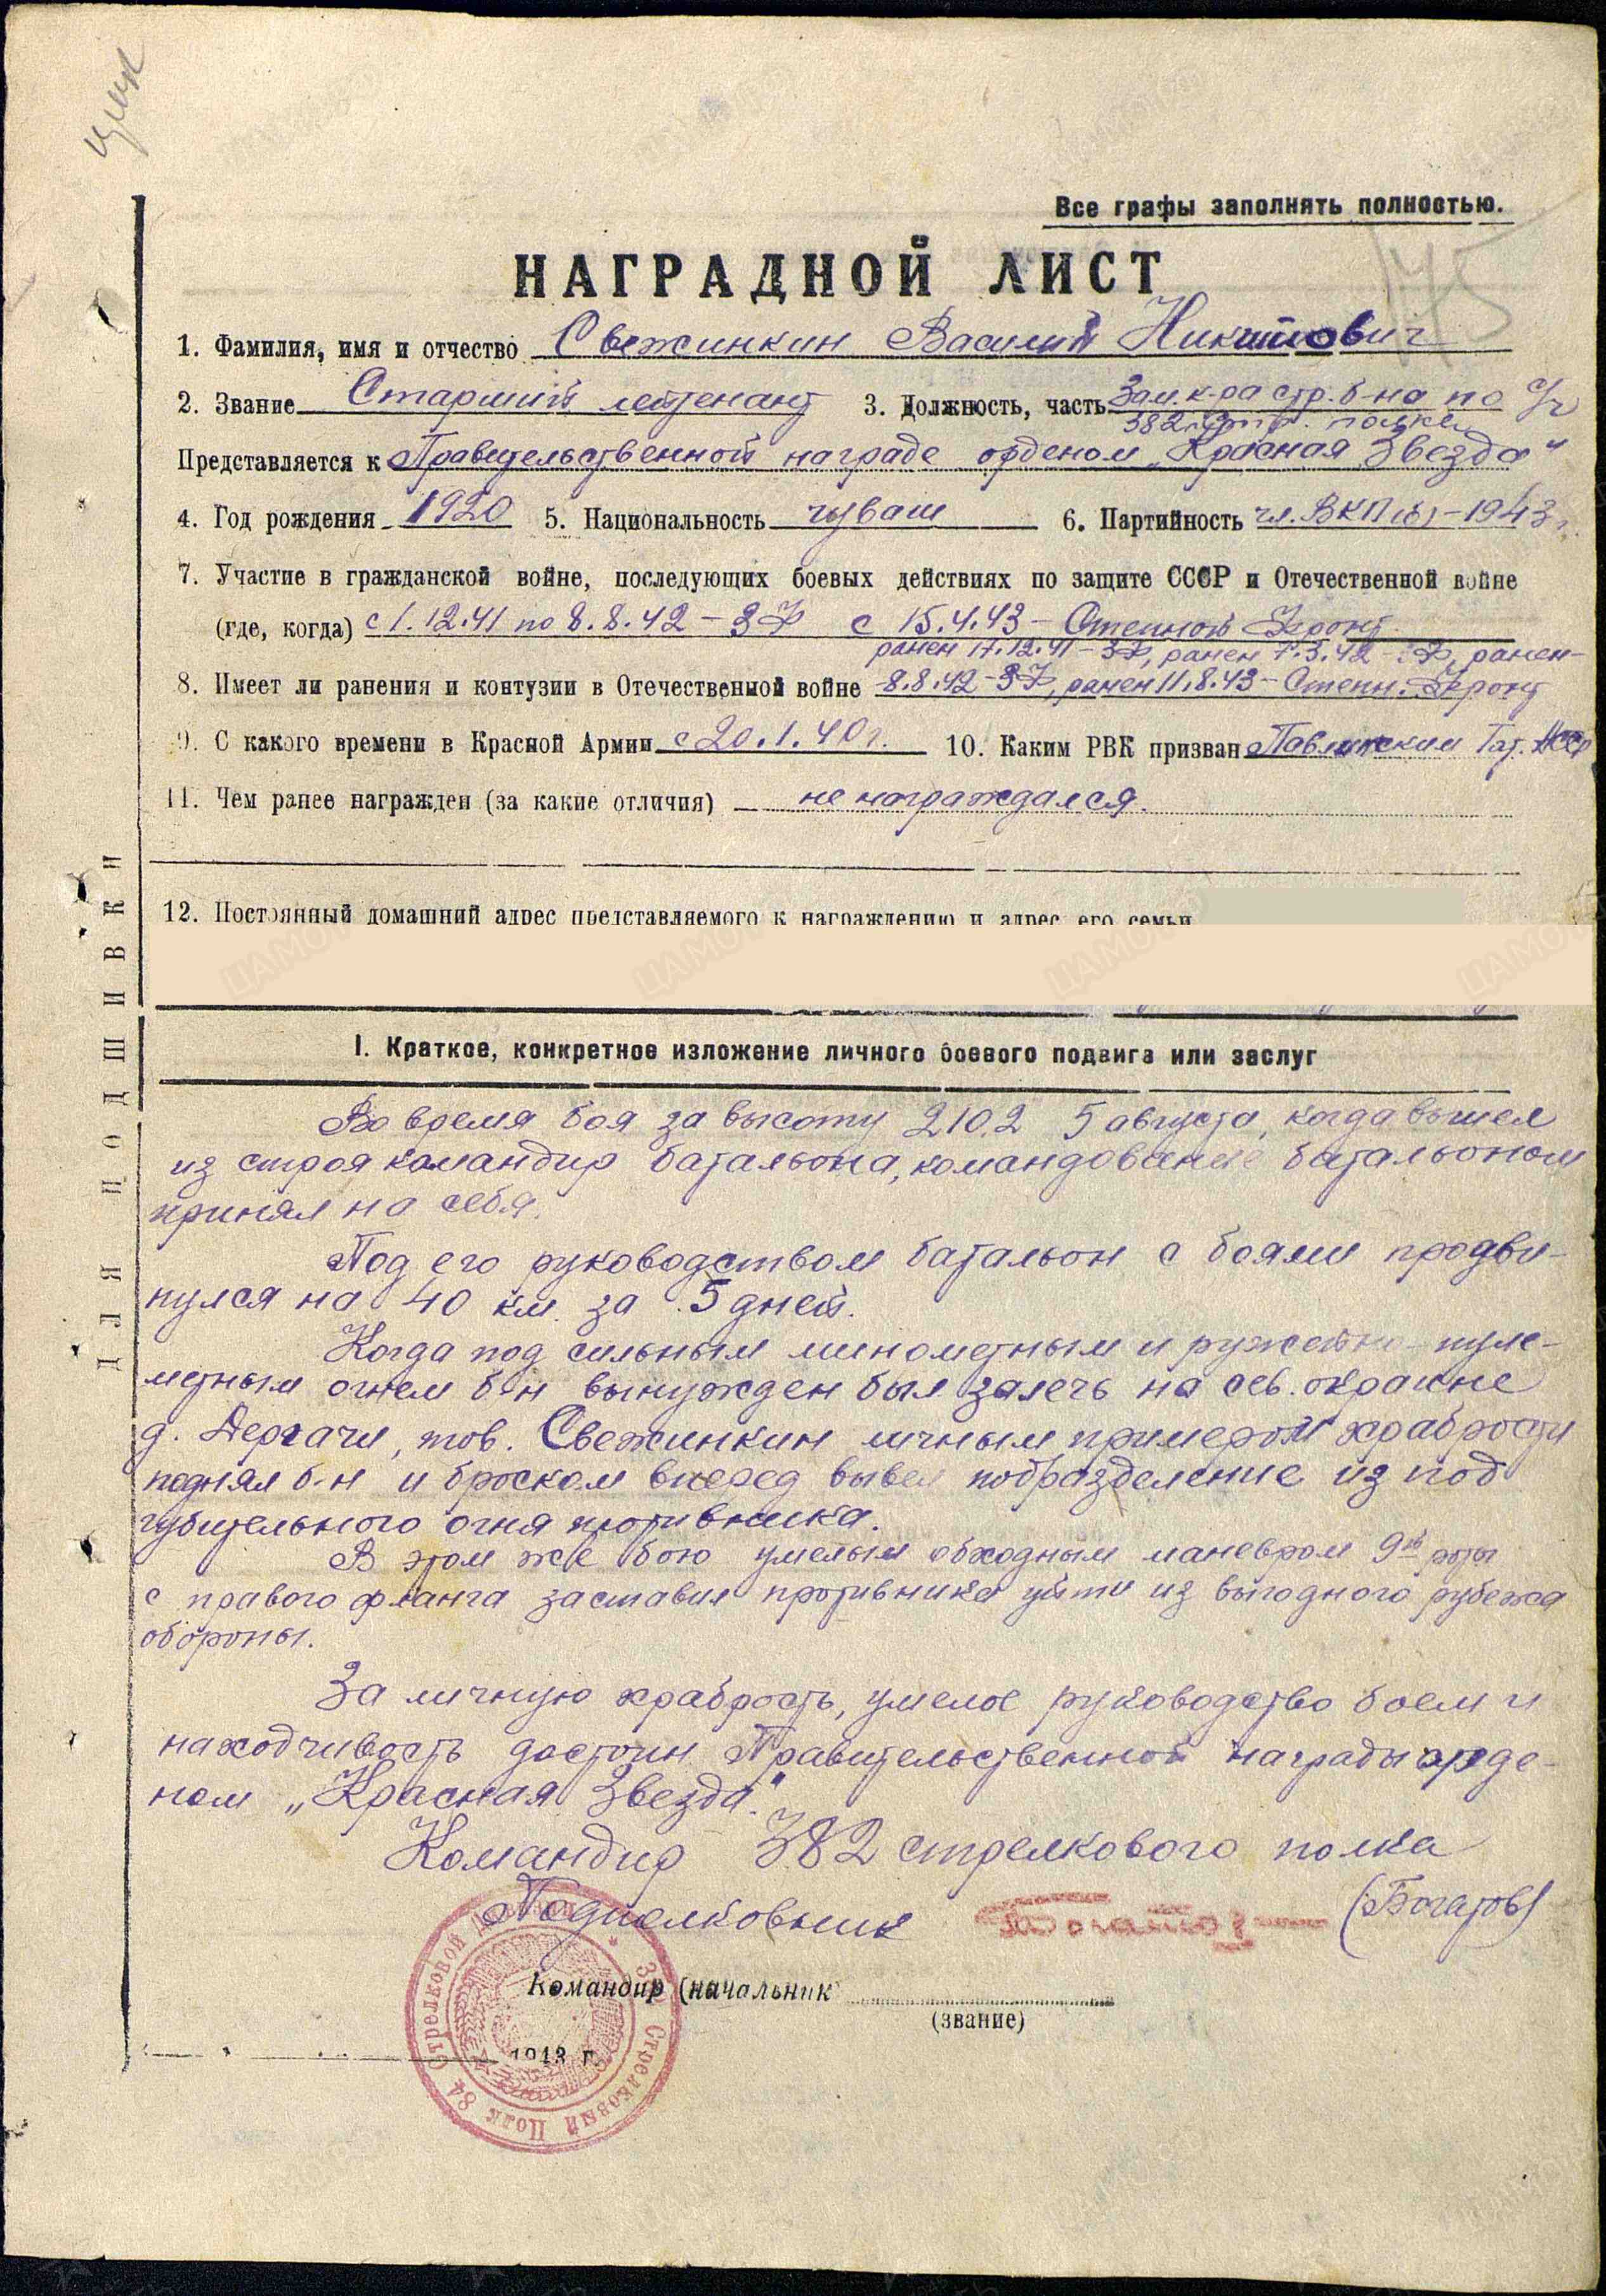 цик
Все графы заполнять полностью.
175
НАГРАДНОЙ ЛИСТ
1. Фамилия, имя и отчество Свежинкин Василий Никитович
2. Звание Старший лейтенант 3. Должность, часть Зам. к-ра стр. б-на по
382 стр. полка
Представляется к Правительственной награде орденом „Красная Звезда"
4. Год рождения 1920 5. Национальность чуваш 6. Партийность чл. ВКП(б) – 1943 г.
7. Участие в гражданской войне, последующих боевых действиях по защите СССР и Отечественной войне
(где, когда) с 1.12.41 по 8.8.42 – ЗФ с 15.4.43 – Степной Фронт
ранен 17.12.41 – ЗФ, ранен 7.3.42 – ЗФ, ранен –
8. Имеет ли ранения и контузии в Отечественной войне 8.8.42 – ЗФ, ранен 11.8.43 – Степн. Фронт
9. С какого времени в Красной Армии с 20.1.40 г. 10. Каким РВК призван Тат. АССР
11. Чем ранее награжден (за какие отличия) не награждался.
12. Постоянный домашний адрес представляемого к награждению и адрес его семьи
ДЛЯ ПОДШИВКИ
I. Краткое, конкретное изложение личного боевого подвига или заслуг
Во время боя за высоту 210.2 5 августа, когда вышел
из строя командир батальона, командование батальоном
принял на себя.
Под его руководством батальон с боями продви-
нулся на 40 км. за 5 дней.
Когда под сильным минометным и ружейно-пуле-
метным огнем б-н вынужден был залечь на сев. окраине
д. Дергачи, тов. Свежинкин личным примером храбрости
поднял б-н и броском вперед вывел подразделение из под
губительного огня противника.
В этом же бою умелым обходным маневром 9й роты
с правого фланга заставил противника уйти из выгодного рубежа
обороны.
За личную храбрость, умелое руководство боем и
находчивость достоин Правительственной награды орде-
ном „Красная Звезда".
Командир 382 стрелкового полка
Подполковник (Богатов)
Командир (начальник
(звание)
1943 г.
84 Стрелковой Дивизии * 382 Стрелковый Полк